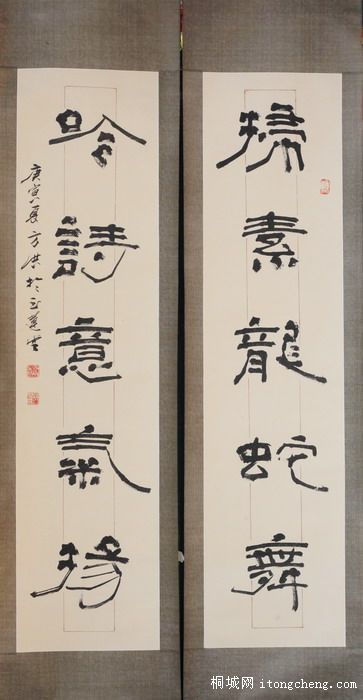 掃素龍蛇舞
吟詩意氣揚
庚寅夏方洪於
桐城网 itongcheng.com